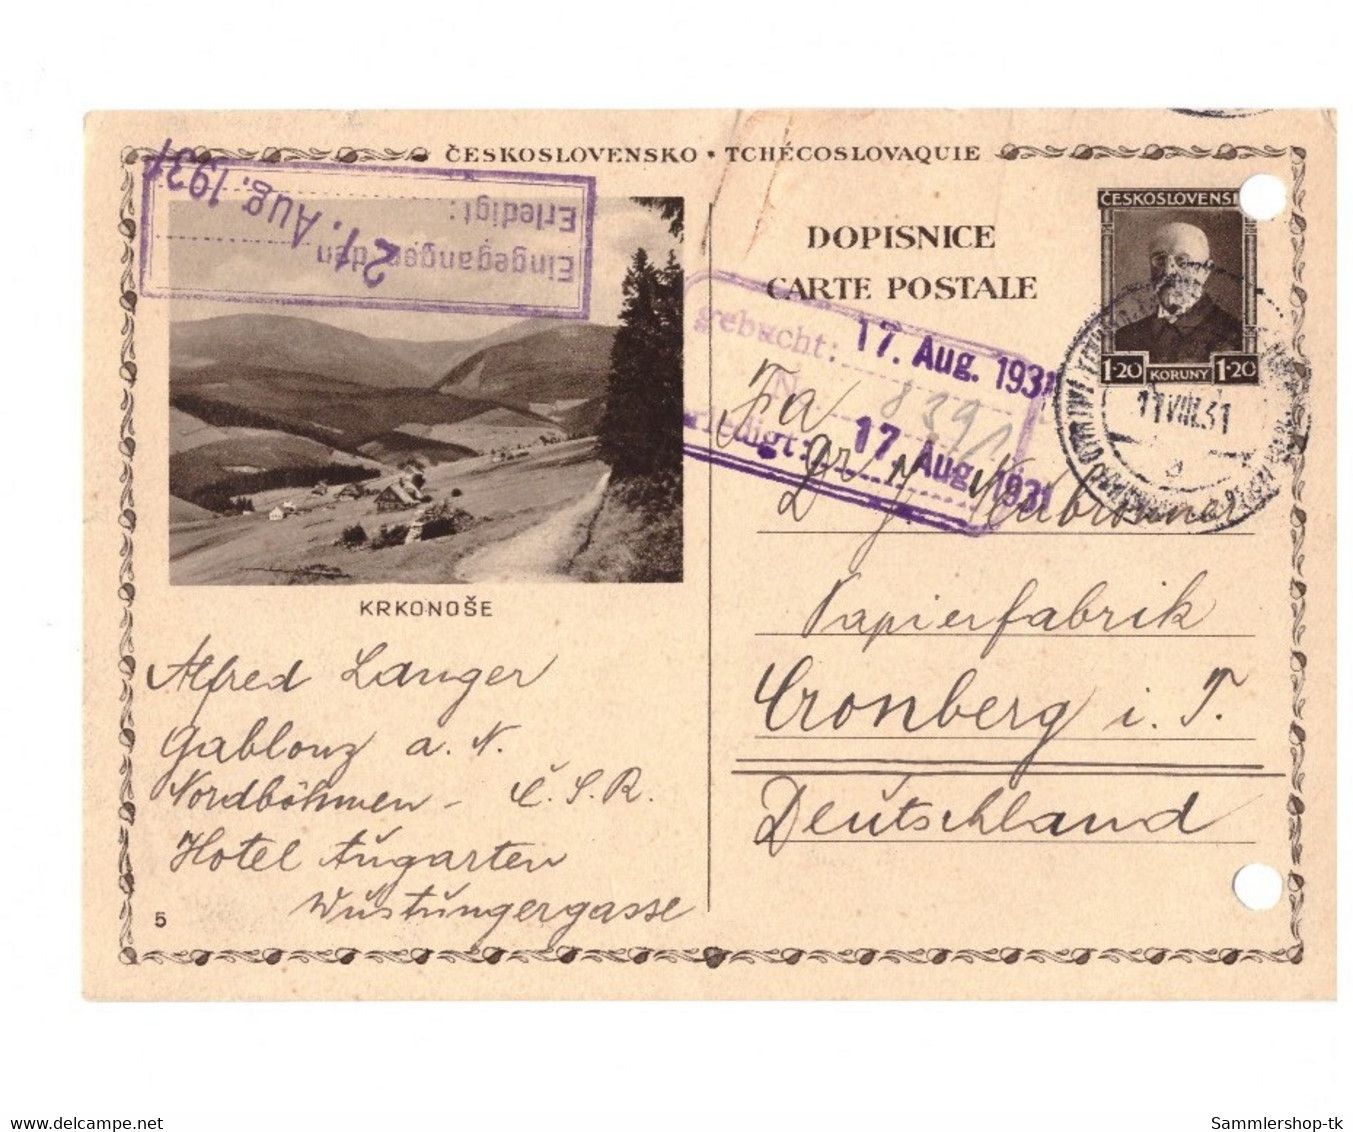 ČESKOSLOVENSKO • TCHÉCOSLOVAQUIE
Eingegangen den
21. Aug. 1931
Erledigt:
DOPISNICE
CARTE POSTALE
ČESKOSLOVENS
1·20 KORUNY 1·20
11VIII.31
gebucht: 17. Aug. 1931
N 8391
rledigt: 17. Aug. 1931
Fa
Papierfabrik
Cronberg i. T.
Deutschland
KRKONOŠE
Alfred Langer
Gablonz a. N.
Nordböhmen - Č.S.R.
Hotel Augarten
Wüstungergasse
5
www.delcampe.net
Sammlershop-tk